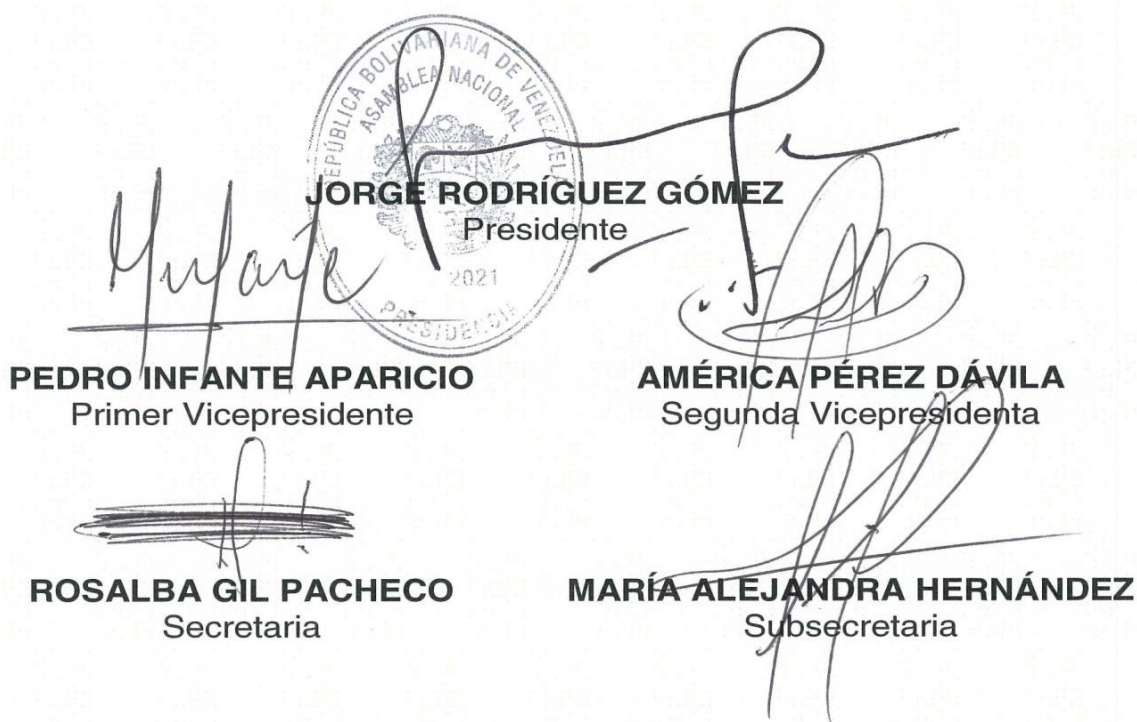 REPÚBLICA BOLIVARIANA DE VENEZUELA
ASAMBLEA NACIONAL
JORGE RODRÍGUEZ GÓMEZ
Presidente
2021
PRESIDENCIA
Ynfante
PEDRO INFANTE APARICIO
Primer Vicepresidente
AMÉRICA PÉREZ DÁVILA
Segunda Vicepresidenta
ROSALBA GIL PACHECO
Secretaria
MARÍA ALEJANDRA HERNÁNDEZ
Subsecretaria